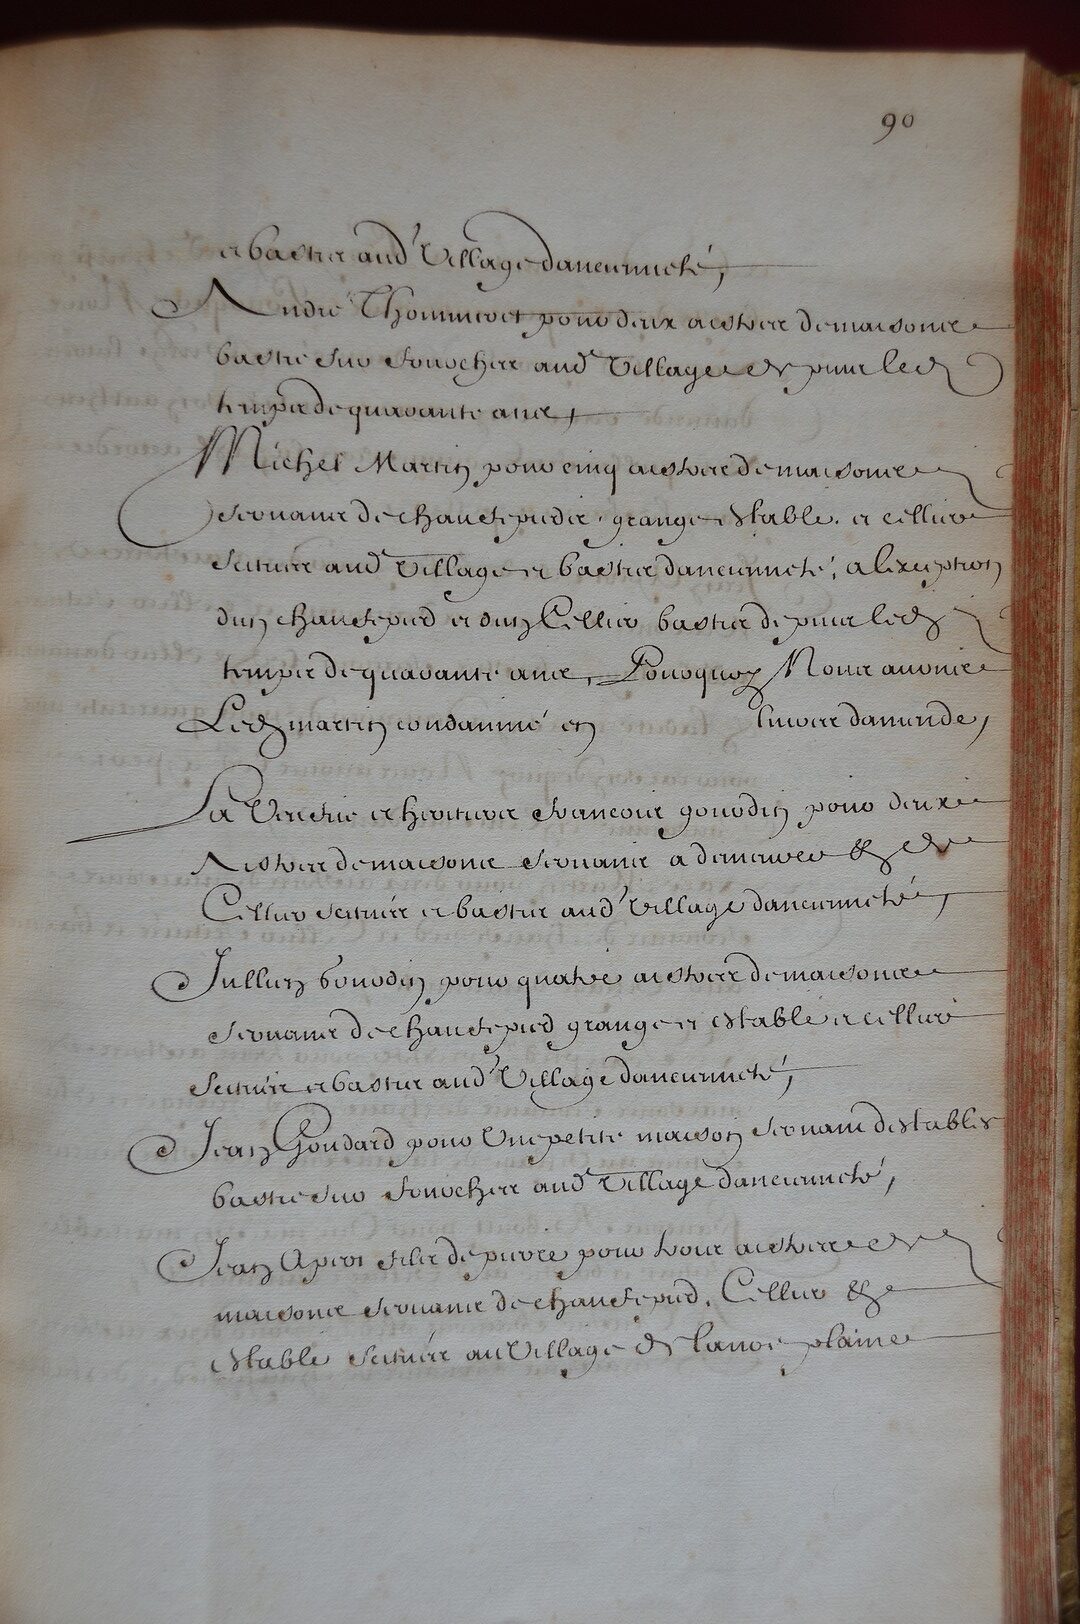 90
et bastis aud' Village d'ancienneté,
André Thommeret pour deux aistres de maisons
bastis sur fourches aud' Village depuis led
temps de quarante ans,
Michel Martin pour cinq aistres de maisons
servans de chaufepieds, grange estable et cellier
scitués aud' Village et bastis dancienneté, a lexception
dun chaufepied et dun Cellier bastis depuis led
temps de quarante ans, Pourquoy Nous avons
Led martin condamné en livres damende,
La Veufve et heritiers francois gourdin pour deux
Aistres de maisons servans a demeurer & de
Cellier scitués et bastis aud' Village dancienneté,
Jullien bourdin pour quatre aistres de maisons
servans de chaufepied grange et estable et cellier
scitués et bastis aud' Village dancienneté,
Jean Goudard pour Une petite maison servant destables
bastie sur fourches aud' Village dancienneté,
Jean Apert fils de pierre pour trois aistres de
maisons servans de chaufepied, Cellier &
estable scitués au Village de plaine